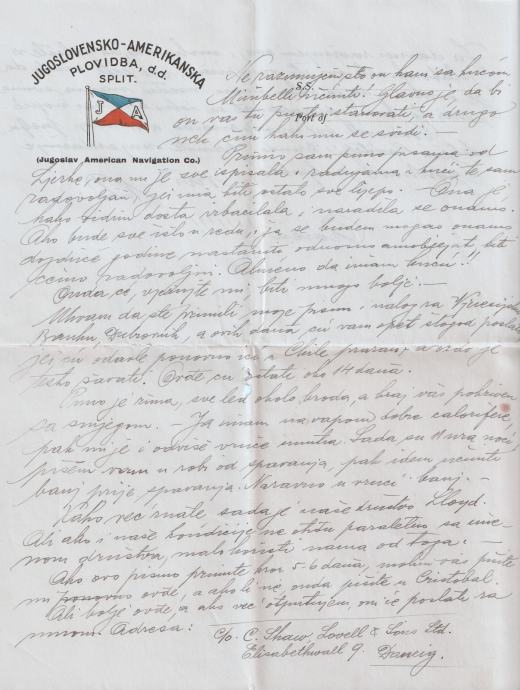 JUGOSLOVENSKO-AMERIKANSKA
PLOVIDBA, d.d.
SPLIT.
J A
(Jugoslav American Navigation Co.)
S.S.
Port of
Ne razumijem što on kani sa kućom
Mirabelli učiniti! Glavno je da bi
on vas tu pustio stanovati, a drugo
nek čini kako mu se svidi. —
Primio sam pismo od
Ljerke, ona mi je sve ispisala i kući te sam
zadovoljan, jer ima biti ostalo sve lijepo. — Ona je
kako vidim dosta i naradila se onamo.
Ako bude sve išlo u redu, i ja se budem mogao onamo
dojduće godine nastaniti odnosno biti
ćemo zadovoljni. da imam kuću!!
Onda će, vjerujte mi biti mnogo bolje. —
Uhvam da ste primili moje pismo i nalog na
Banku, Dubrovnik, a ovih dana ću vam opet štogod poslati
jer ću odavle ponovno ići u Chile prazan, a ovo je
teško Ovde ću ostati oko 14 dana.
Prvo je zima, sve led okolo broda, a kraj vas pokriven
sa snijegom. — Ja imam na vaporu dobre calorifere,
pak mi je i odviše vruće unutra. Sada su 11 ura noći
pišem vam u robi od spavanja, pak idem učiniti
banj prije spavanja. Naravno u vrućoj banji. —
Kako već znate sada je naše društvo Lloyd.
Ali ako i naše kondicije ne budu paralelne sa
nom društva, malo koristi nama od toga. —
Ako ovo pismo primite kroz 5-6 dana, molim vas pišite
mi ponovno ovde, a ako li ne, onda pišite u Cristobal.
Ali bolje ovde, a ako već otputujem, oni će poslati za
mnom. Adresa: c/o. C. Shaw, Lovell & Sons Ltd.
Elisabethwall 9. Danzig.